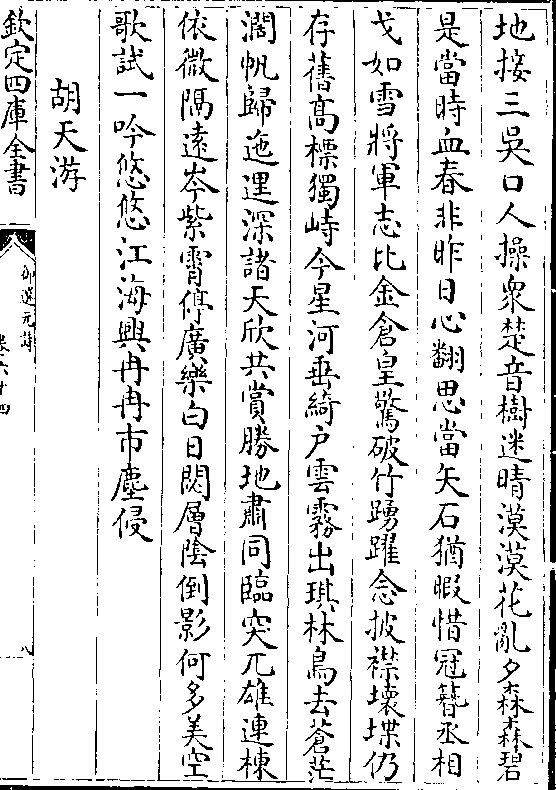 地接三吳口人操衆楚音樹迷晴漠漠花亂夕森森碧
是當時血春非昨日心翻思當矢石猶暇惜冠簪丞相
戈如雪將軍志比金倉皇驚破竹踴躍念披襟壊堞仍
存舊髙標獨峙今星河垂綺户雲霧出琪林鳥去蒼茫
濶帆歸迤邐深諸天欣共賞勝地肅同臨突兀雄連棟
依微隔逺岑紫霄停廣樂白日閟層陰倒影何多美空
歌試一吟悠悠江海興冉冉市塵侵
胡天游
欽定四庫全書
御選元詩
卷六十四
八